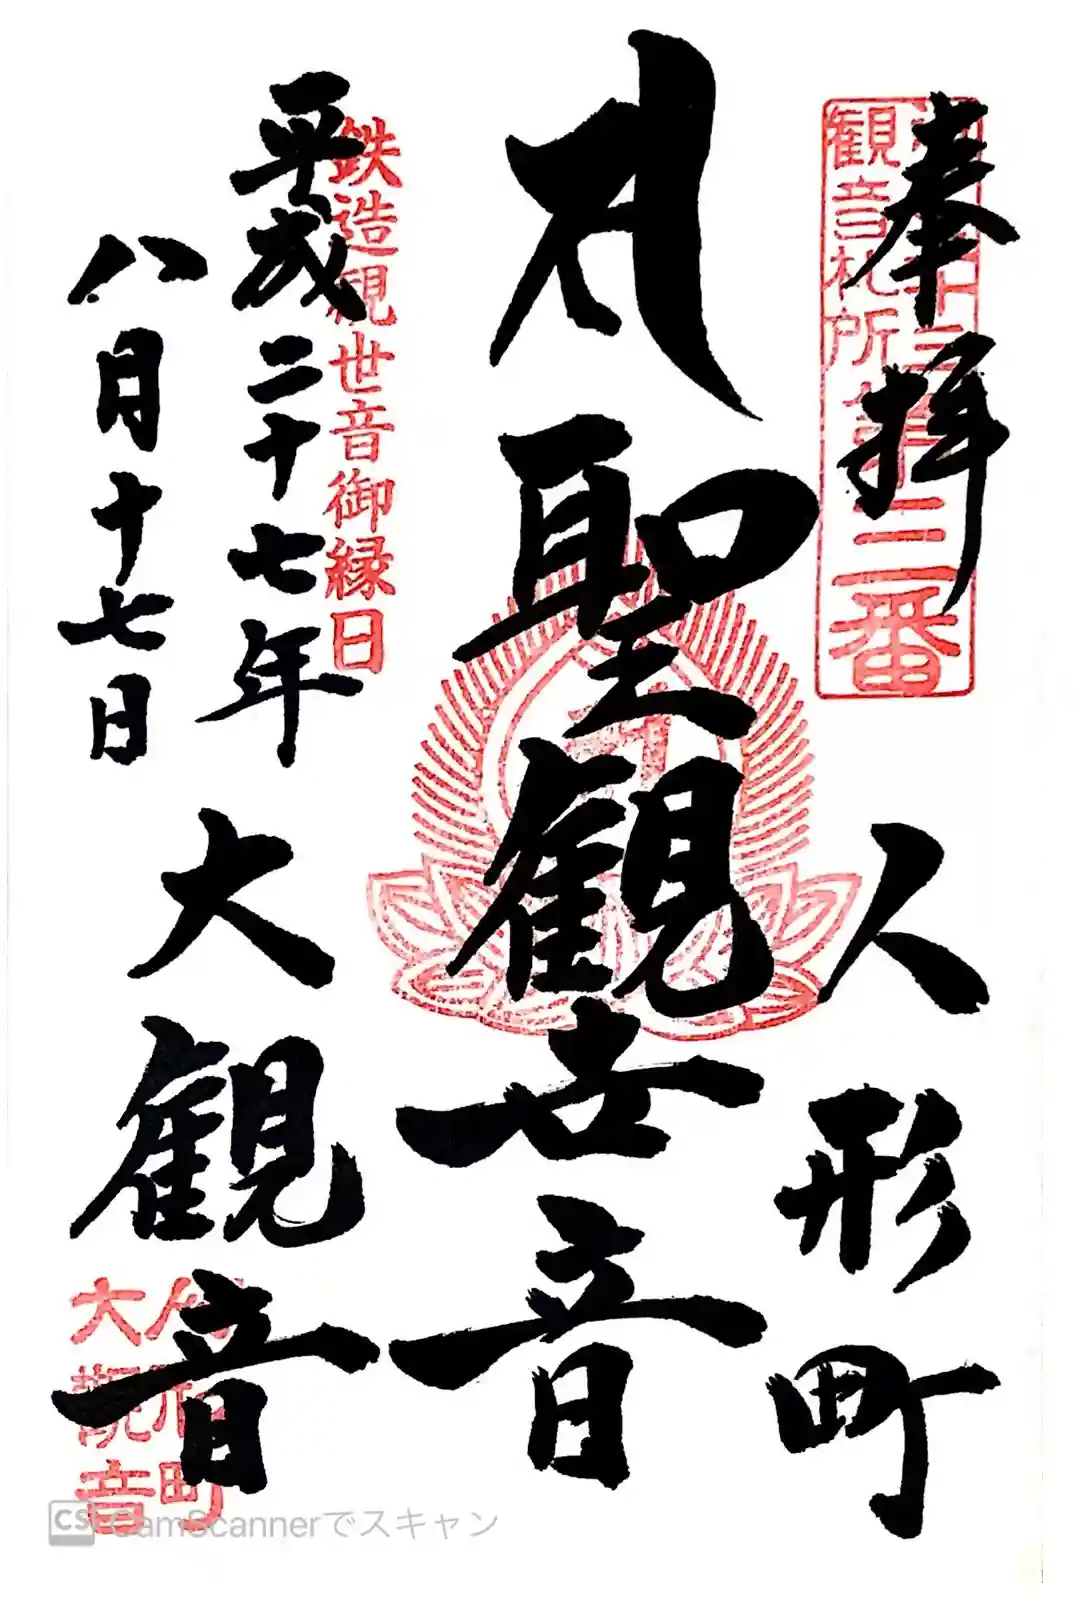 奉拝
人形町
観音札所第三番
聖観世音
鉄造観世音御縁日
平成二十七年
八月十七日
大観音
人形町
大観音
CS CamScannerでスキャン